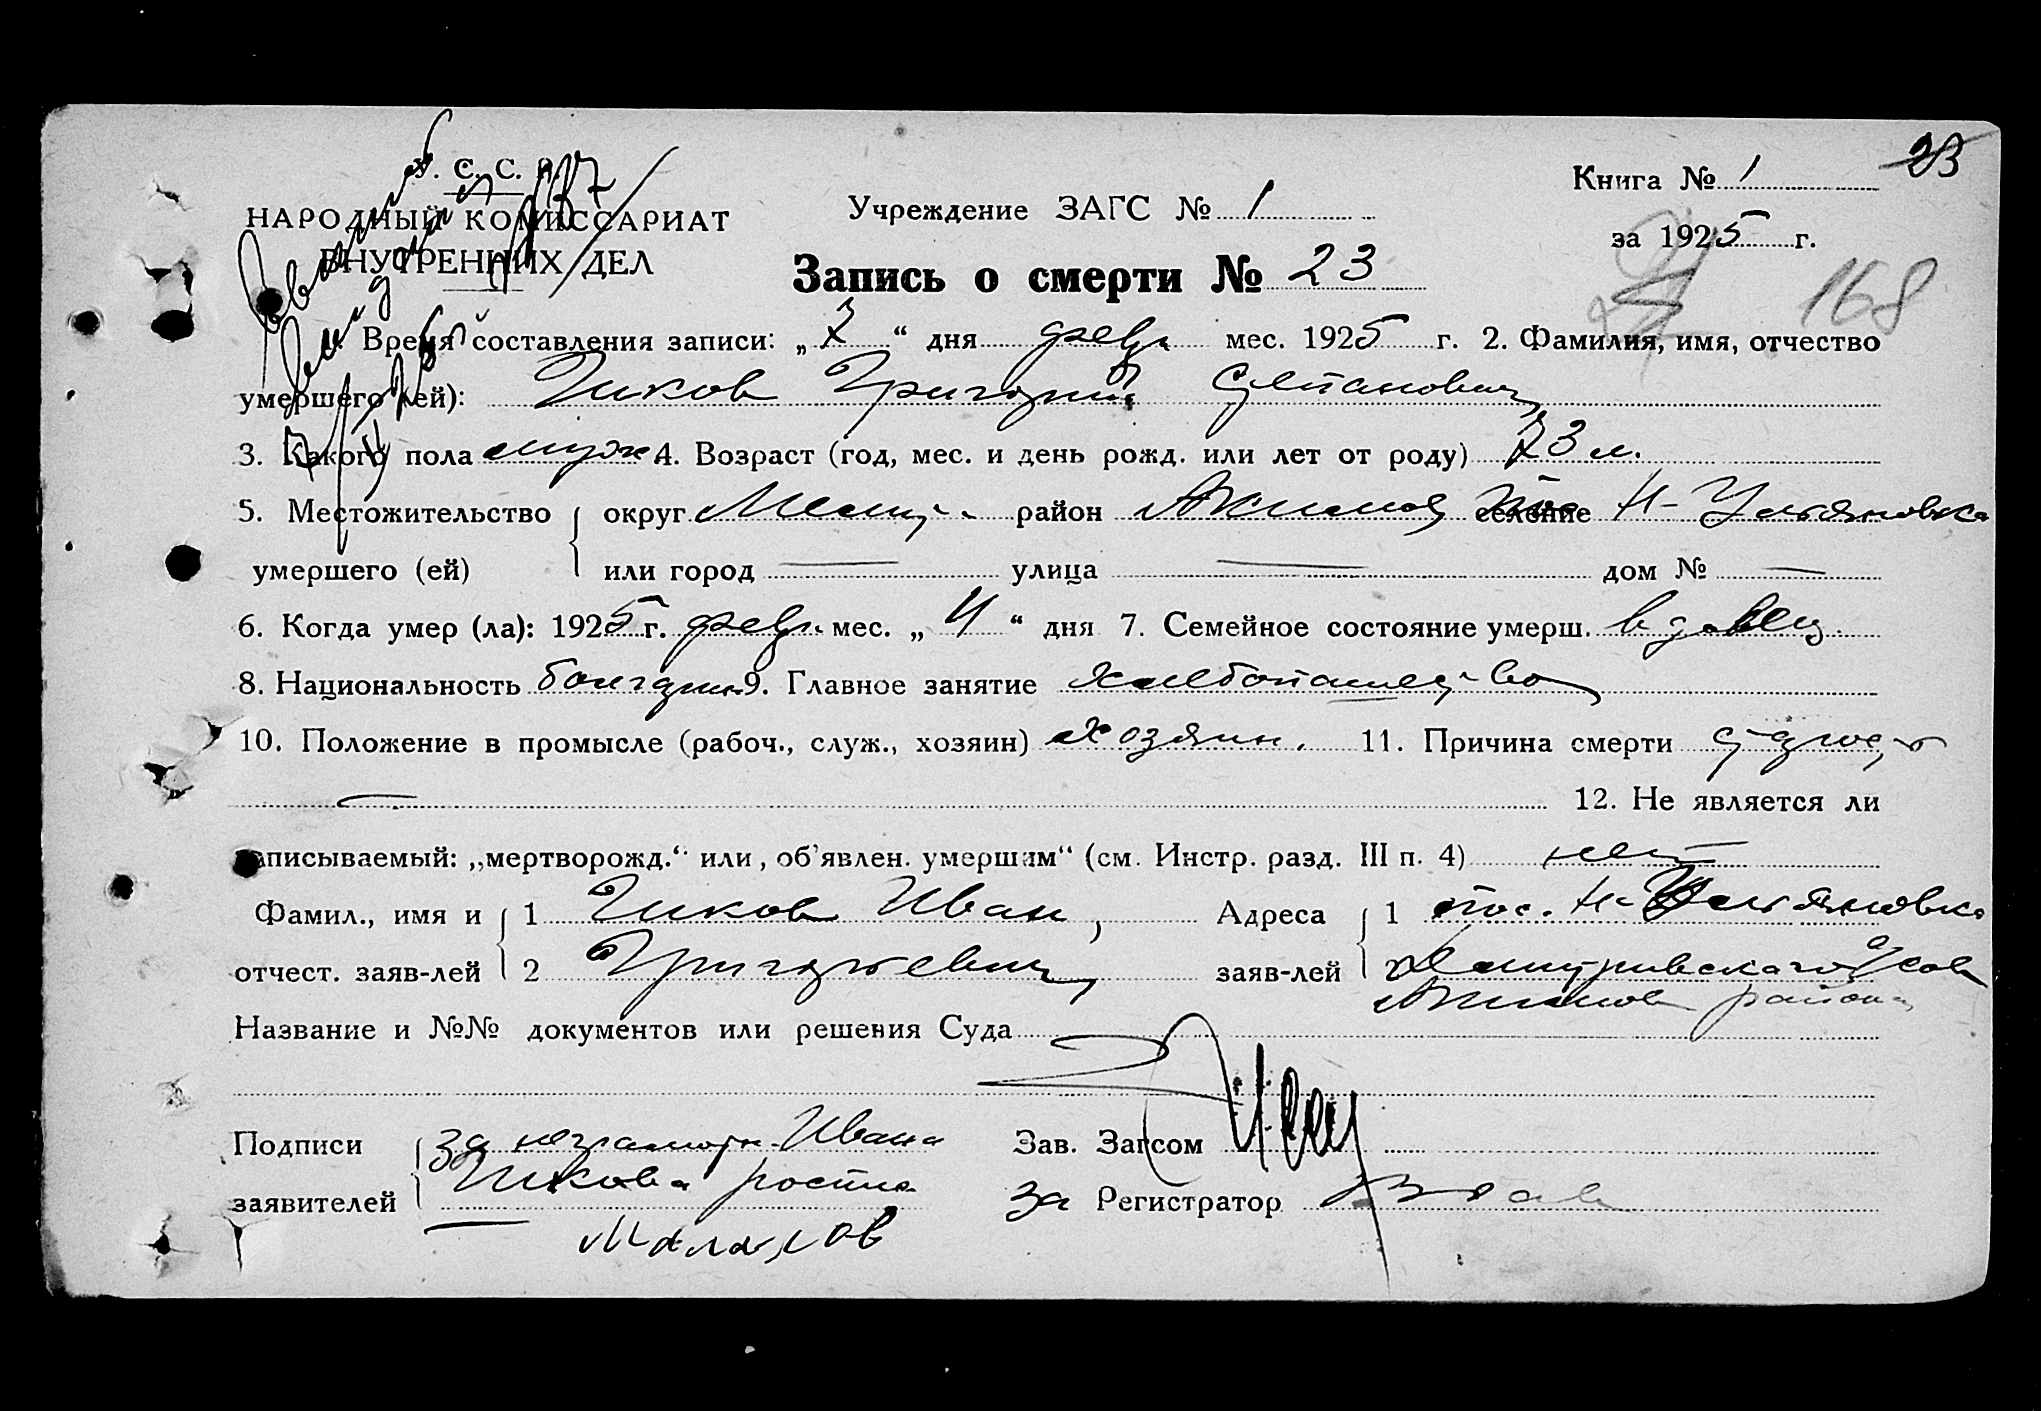 У. С. С. Р.
НАРОДНЫЙ КОМИССАРИАТ
ВНУТРЕННИХ ДЕЛ
Учреждение ЗАГС № 1
Книга № 1
23
за 1925 г.
Запись о смерти № 23
168
1. Время составления записи: „7“ дня февр. мес. 1925 г. 2. Фамилия, имя, отчество
умершего (ей): Чиков Григорий Степанович
3. Какого пола муж. 4. Возраст (год, мес. и день рожд. или лет от роду) 73 л.
5. Местожительство округ Мелит. район Акимов селение пос Н-Ульяновка
умершего (ей) или город — улица — дом № —
6. Когда умер (ла): 1925 г. февр. мес. „4“ дня 7. Семейное состояние умерш. вдовец
8. Национальность болгарин 9. Главное занятие хлебопашество
10. Положение в промысле (рабоч., служ., хозяин) хозяин. 11. Причина смерти старость
— 12. Не является ли
записываемый: „мертворожд.“ или „об'явлен. умершим“ (см. Инстр. разд. III п. 4) нет
Фамил., имя и 1 Чиков Иван, Адреса 1 пос. Н-Ульяновка
отчест. заяв-лей 2 Григорьевич заяв-лей 2 Дмитривского с/сов
Акимов района
Название и №№ документов или решения Суда
Подписи За неграмотн. Ивана Зав. Загсом
заявителей Чикова роспис за Регистратор
Малахов